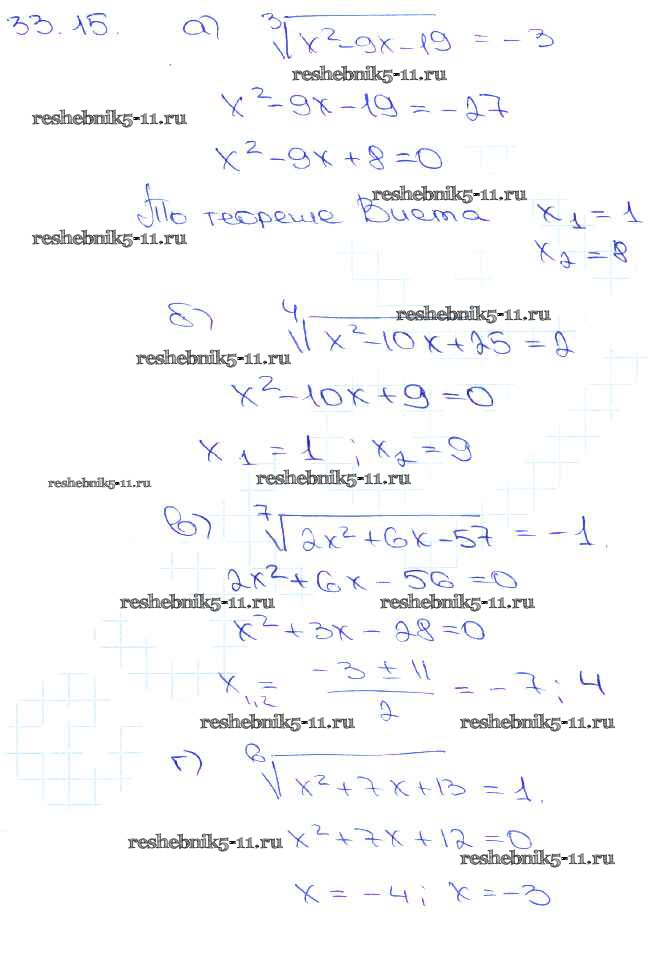 33.15. а) ∛(x²-9x-19) = -3
reshebnik5-11.ru
x²-9x-19=-27
reshebnik5-11.ru
x²-9x+8=0
reshebnik5-11.ru
По теореме Виета x₁=1
reshebnik5-11.ru
x₂=8
reshebnik5-11.ru
б) ⁴√(x²-10x+25) = 2
reshebnik5-11.ru
x²-10x+9=0
x₁=1; x₂=9
reshebnik5-11.ru reshebnik5-11.ru
в) ⁷√(2x²+6x-57) = -1.
2x²+6x-56=0
reshebnik5-11.ru reshebnik5-11.ru
x²+3x-28=0
x₁,₂ = (-3±11)/2 = -7; 4
reshebnik5-11.ru reshebnik5-11.ru
г) ⁶√(x²+7x+13) = 1.
reshebnik5-11.ru x²+7x+12=0
reshebnik5-11.ru
x=-4; x=-3